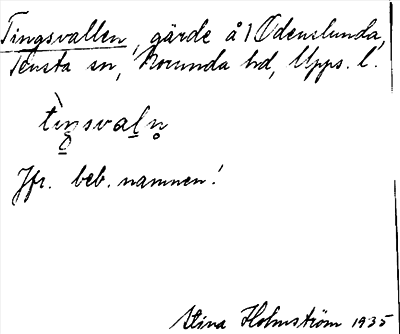 Tingsvallen, gärde å 1 Ödenslunda,
Tensta sn, Norunda hd, Upps. l.
tìŋsvaln
Jfr. beb. namnen!
Stina Holmström 1935